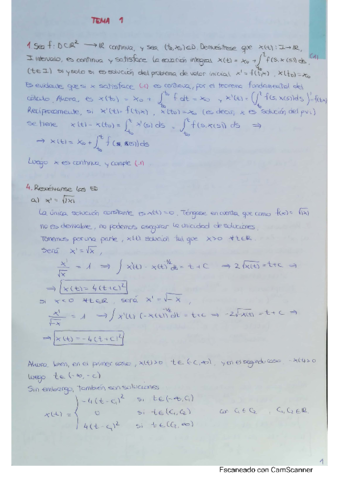 TEMA 1
1. Sea f: D⊂ℝ² → ℝ continua, y sea (t₀,x₀)∈D. Demuéstrese que x(t): I→ℝ,
I intervalo, es continua y satisface la ecuación integral x(t) = x₀ + ∫ f(s,x(s)) ds
(t∈I) si y solo si es solución del problema de valor inicial x' = f(t,x), x(t₀) = x₀
Es evidente que si x satisface es continua, por el teorema fundamental del
cálculo. Ahora, es x(t₀) = x₀ + ∫ f dt = x₀, y x'(t) = (∫ f(s,x(s)) ds)' = f(t,x)
Recíprocamente, si x'(t) = f(t,x), x(t₀) = x₀ (es decir, x es solución del p.v.i.)
Se tiene x(t) - x(t₀) = ∫ x'(s) ds = ∫ f(s,x(s)) ds ⇒
⇒ x(t) = x₀ + ∫ f(s,x(s)) ds
Luego x es continua y cumple
4. Resuélvanse las
a) x' = √|x|
La única solución constante es x(t) = 0. Téngase en cuenta que como f(x) = √|x|
no es derivable, no podemos asegurar la unicidad de soluciones.
Tenemos por una parte, x(t) solución tq que x>0 ∀t∈ℝ
Será x' = √x
x'/√x = 1 ⇒ ∫ x'(t) · x(t) dt = t + C ⇒ 2√x(t) = t + C ⇒
⇒ x(t) = 4(t+C)²
Si x<0 ∀t∈ℝ, será x' = √-x
x'/√-x = 1 ⇒ ∫ x'(t) (-x(t)) dt = t + C ⇒ -2√-x(t) = t + C ⇒
⇒ x(t) = -4(t+C)²
Ahora bien, en el primer caso, x(t)>0 t∈(-C,∞), y en el segundo caso -x(t)>0
luego t∈(-∞,-C)
Sin embargo, también son soluciones
x(t) = { -4(t-C₁)² si t∈(-∞,C₁)
0 si t∈(C₁,C₂) con C₁<C₂, C₁,C₂∈ℝ
4(t-C₂)² si t∈(C₂,∞)
1
Escaneado con CamScanner